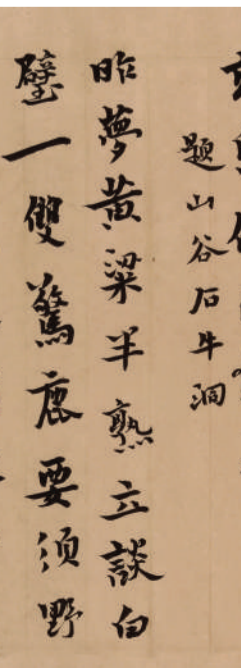 題山谷石牛洞
昨夢黃粱半熟立談白
璧一雙驚鹿要須野